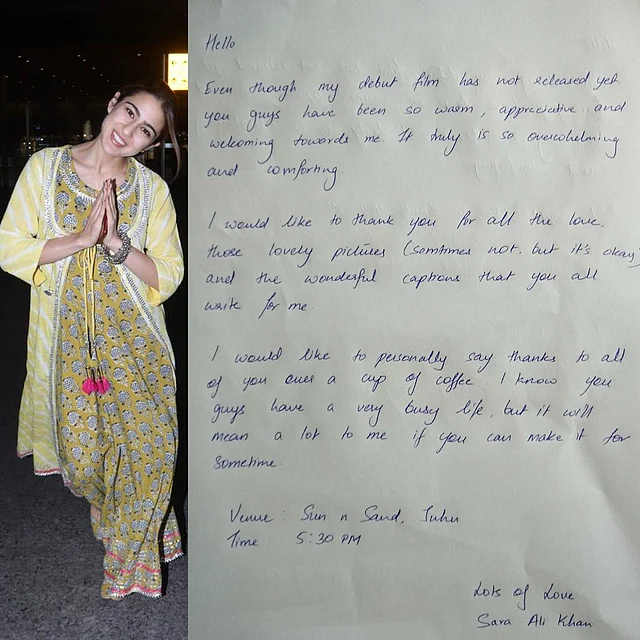 Hello
Even though my debut film has not released yet
you guys have been so warm, appreciative and
welcoming towards me. It truly is so overwhelming
and comforting
I would like to thank you for all the love,
those lovely pictures (somtimes not, but it's okay)
and the wonderful captions that you all
write for me.
I would like to personally say thanks to all
of you over a cup of coffee. I know you
guys have a very busy life, but it will
mean a lot to me if you can make it for
sometime.
Venue: Sun n Sand, Juhu
Time: 5:30 PM
Lots of Love
Sara Ali Khan